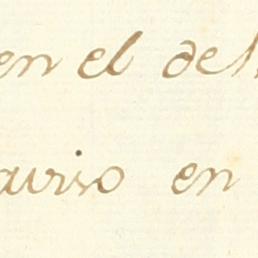 en el del
aviso en